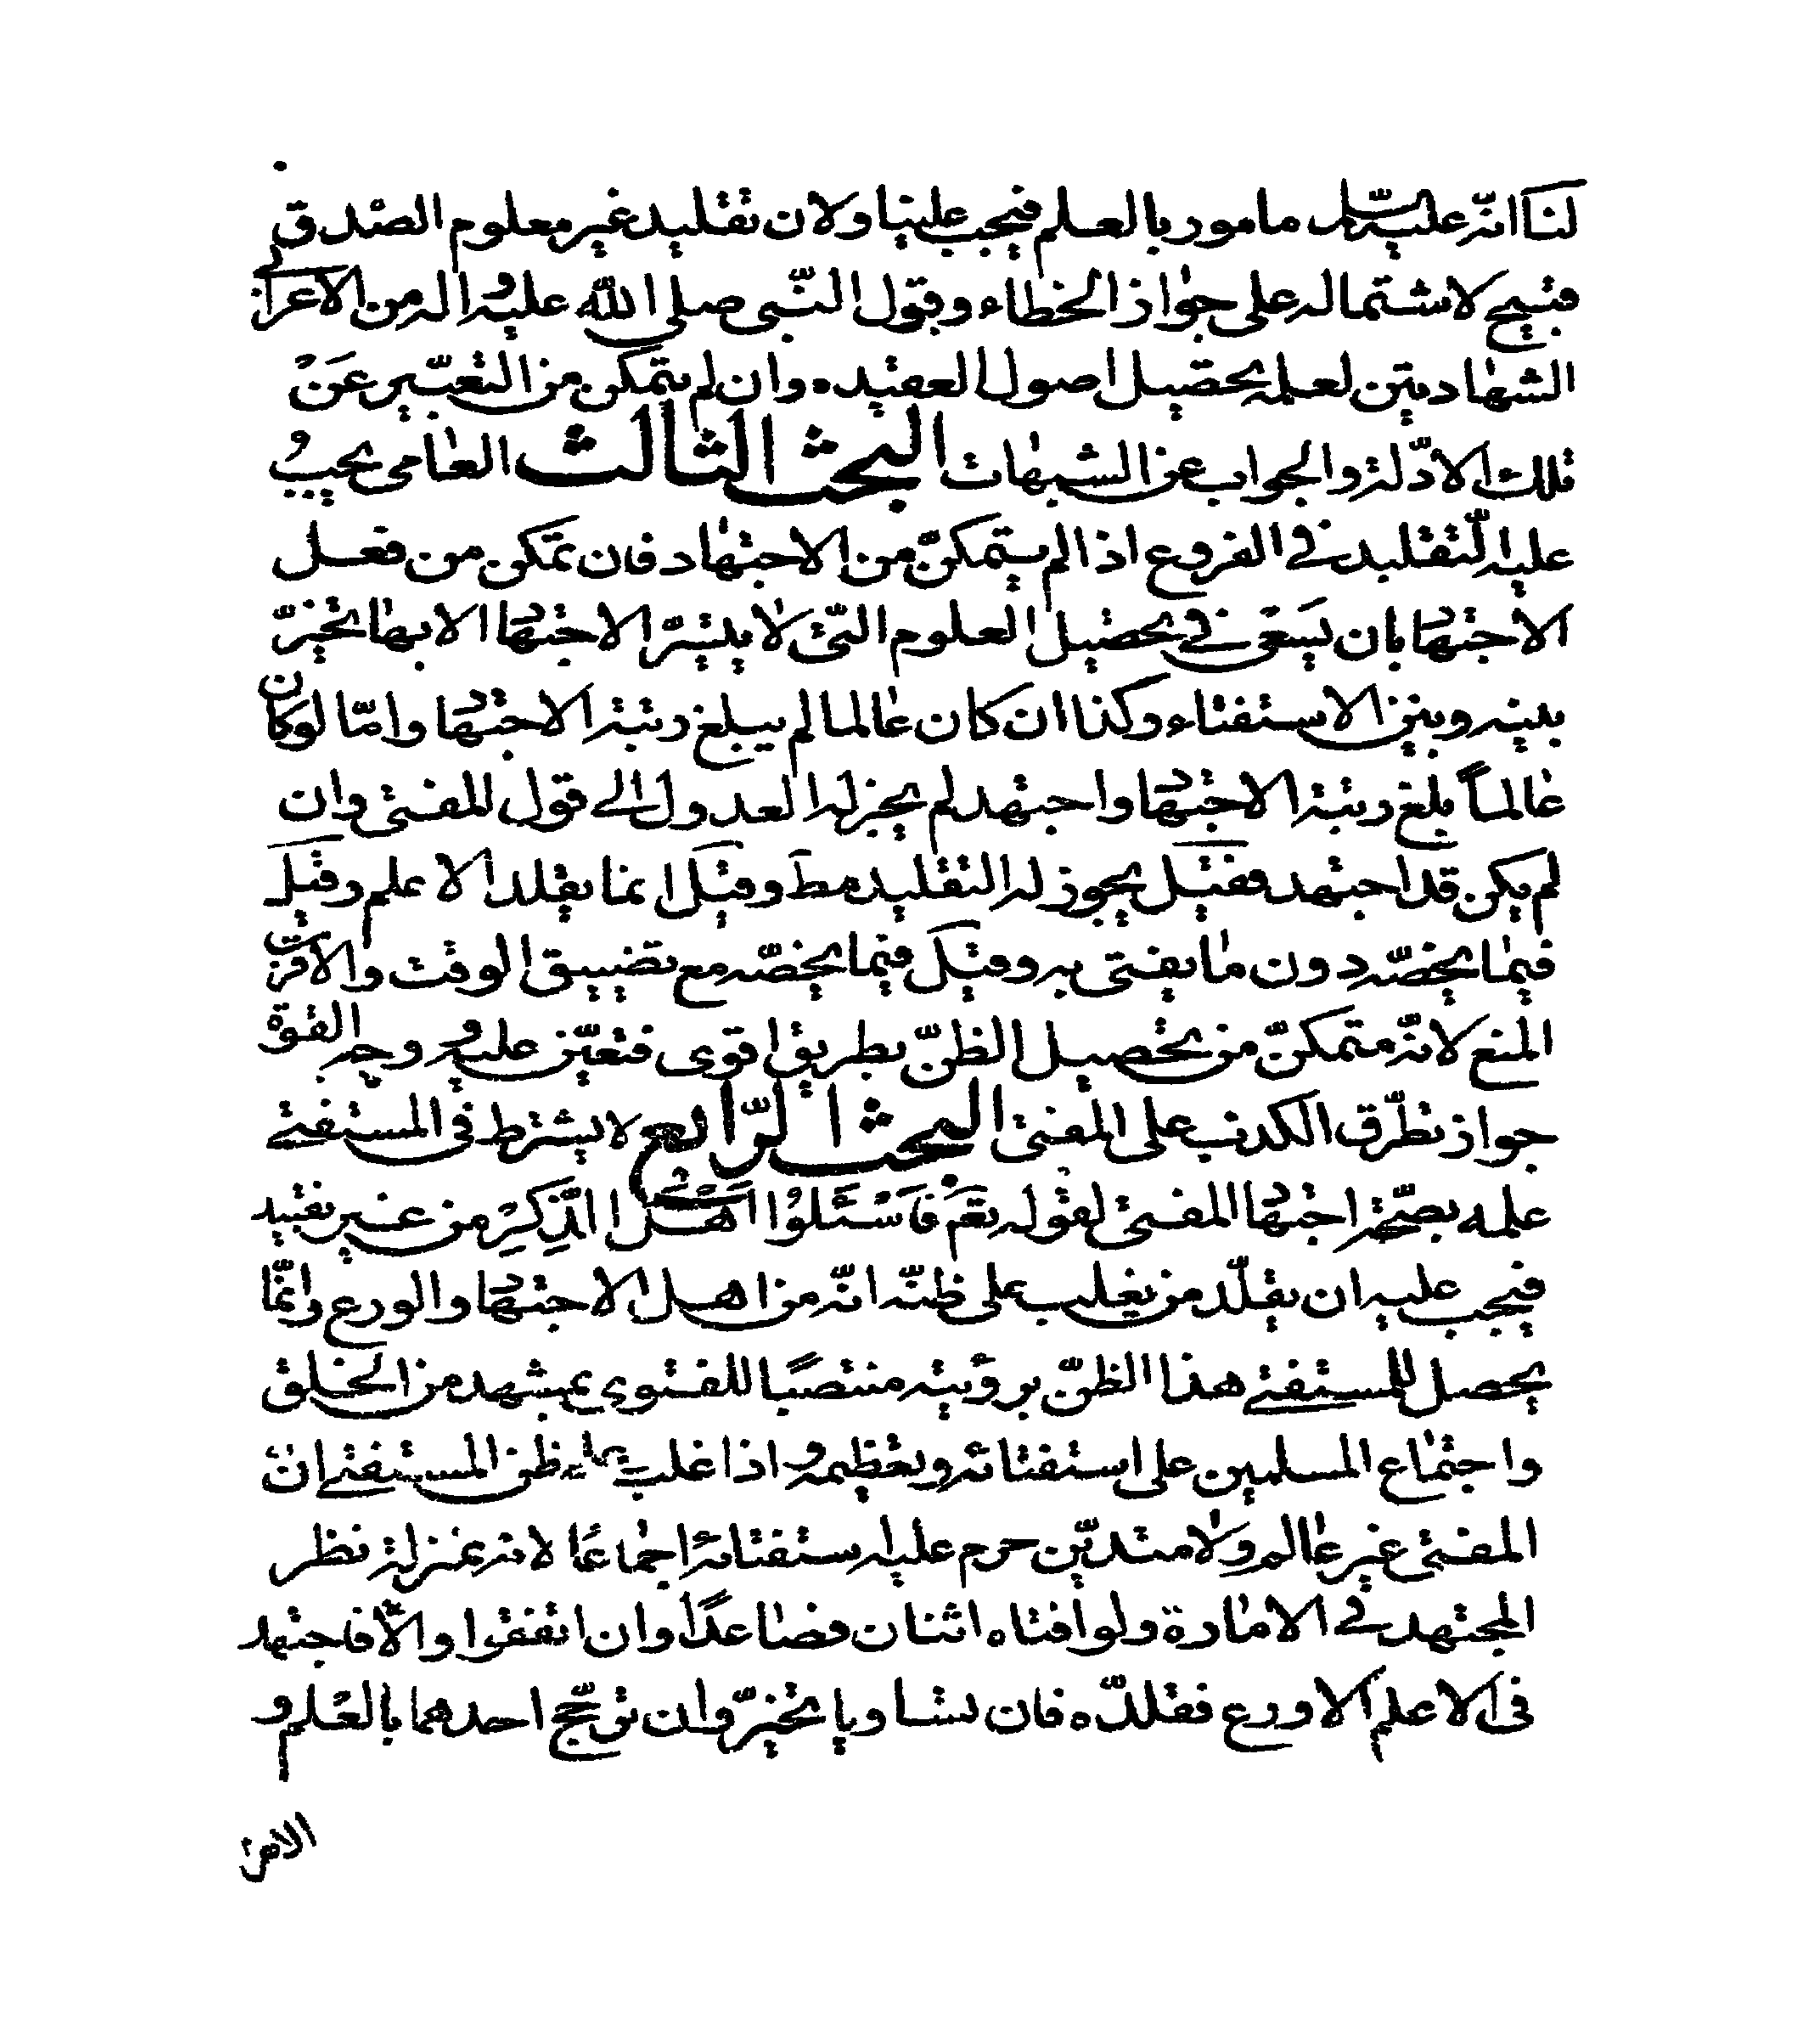 لنا انّه عليه السّلم مامور بالعلم فيجب علينا ولان تقليد غير معلوم الصّدق
قبيح لاشتماله على جواز الخطاء وقبول النّبى صلى الله عليه واله من الاعرابى
الشهادتين لعلمه بحصيل اصول العقيده وان لم يتمكن من التعبّير عَنْ
تلك الادّلة والجواب عن الشبهات البحث الثالث العامى يجب
عليه التّقليد فى الفروع اذا لم يتمكنّ من الاجتهاد فان تمكن من فعل
الاجتهاد بان يَسعَى فى تحصيل العلوم التّى لا يتيسّر الاجتهاد الا بها تخيّر
بينه وبين الاستفتاء وكذا ان كان عالما لم يبلغ رتبة الاجتهاد وامّا لو كان
عالماً بلغ رتبة الاجتهاد واجتهد لم يجز له العدول الى قول المفتى وان
لم يكن قد اجتهد فقيل يجوز له التقليد مط وقيل انما يقلد الاعلم وقيل
فيما يخصّه دون ما يفتى به وقيل فيما يخصّه مع تضييق الوقت والاقرب
المنع لانّه متمكنّ من تحصيل الظنّ بطريق اقوى فتعيّن عليه وجه القوة
جواز تطرّق الكذب على المفتى البحث الرّابع لا يشترط فى المستفتى
علمه بصحّة اجتهاد المفتى لقوله تعم فَاسْئَلُوا اَهْلَ الذِّكِرْ من غير تقييد
فيجب عليه ان يقلّد من يغلب على ظنّه انّه من اهل الاجتهاد والورع وانّما
يحصل للمستفتى هذا الظنّ برؤيته منتصبًا للفتوى بمشهد من الخلق
واجتماع المسلمين على استفتائه وتعظيمه واذا غلب على ظن المستفتى ان
المفتى غير عالم ولا متديّن حرم عليه استفتائه اجماعًا لانه بمنزلة نظر
المجتهد فى الامارة ولو افتاه اثنان فصاعدًا وان اتفقوا والاّ فاجتهد
فى الاعلم الاورع فقلدّه فان تساويا تخيّر وان ترجّح احدهما بالعلم و